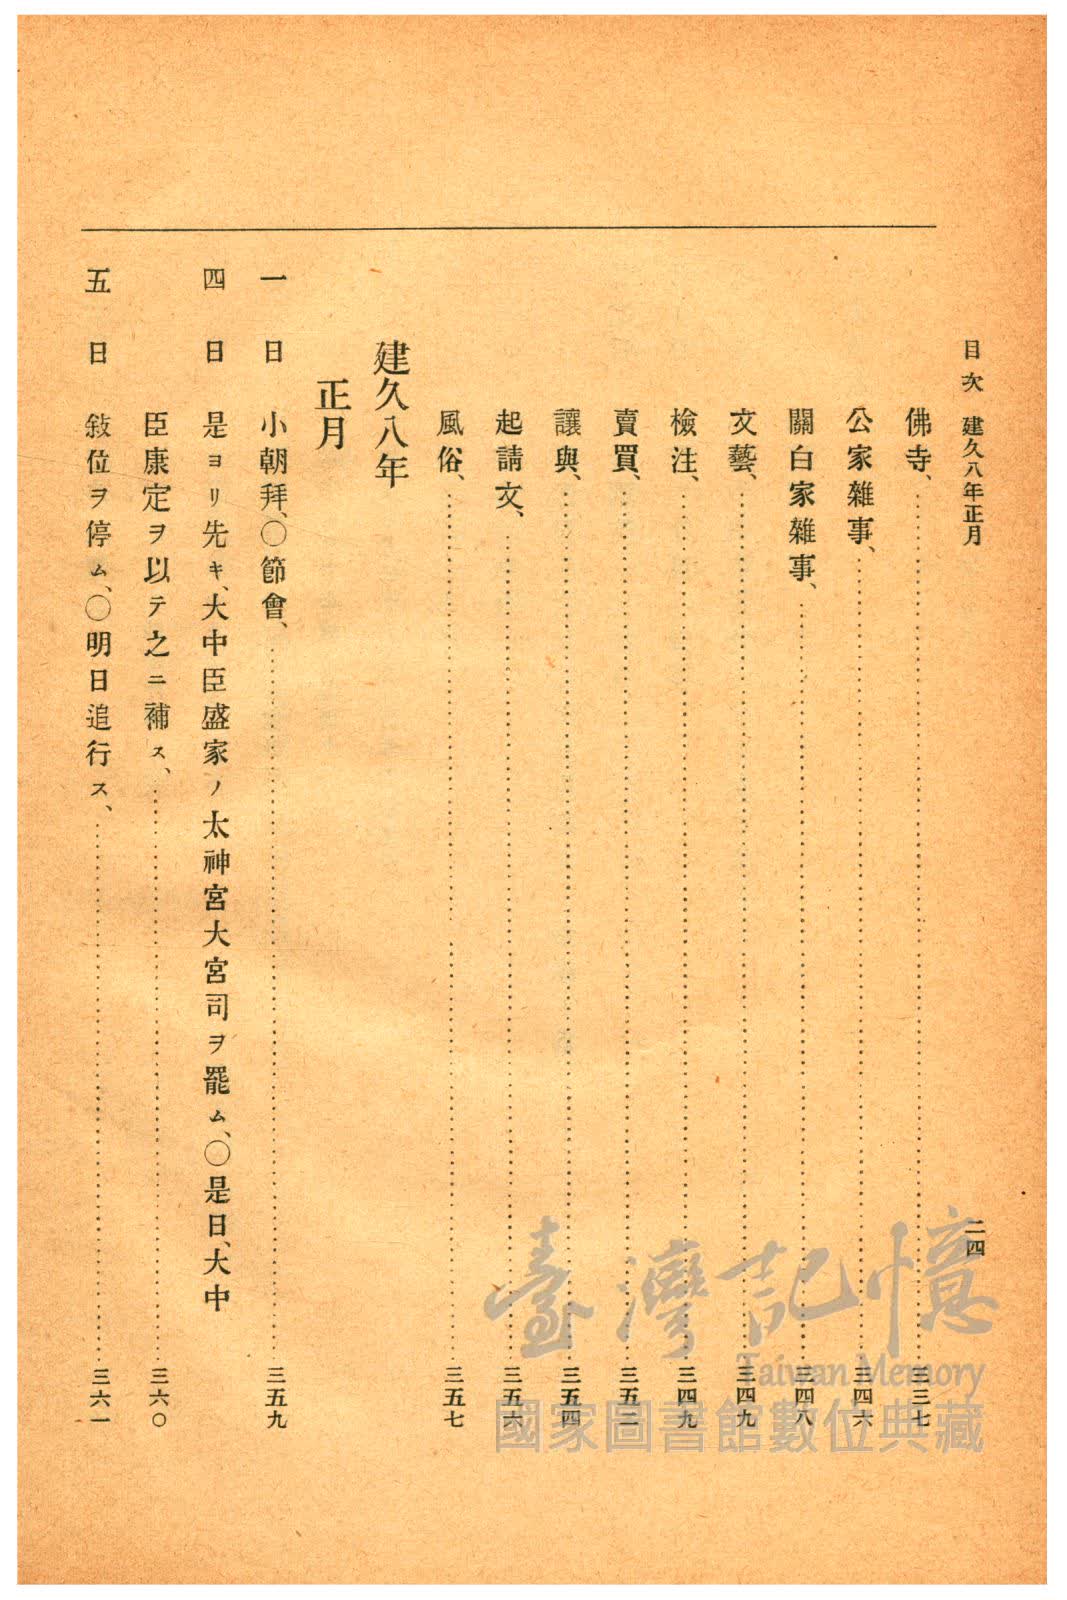 目次 建久八年正月 二四
佛寺、……三三七
公家雜事、……三四六
關白家雜事、……三四八
文藝、……三四九
檢注、……三四九
賣買、……三五二
讓與、……三五四
起請文、……三五六
風俗、……三五七
建久八年
正月
一日 小朝拜、〇節會、……三五九
四日 是ヨリ先キ、大中臣盛家ノ太神宮大宮司ヲ罷ム、〇是日、大中
臣康定ヲ以テ之ニ補ス、……三六〇
五日 敍位ヲ停ム、〇明日追行ス、……三六一
臺灣記憶
Taiwan Memory
國家圖書館數位典藏